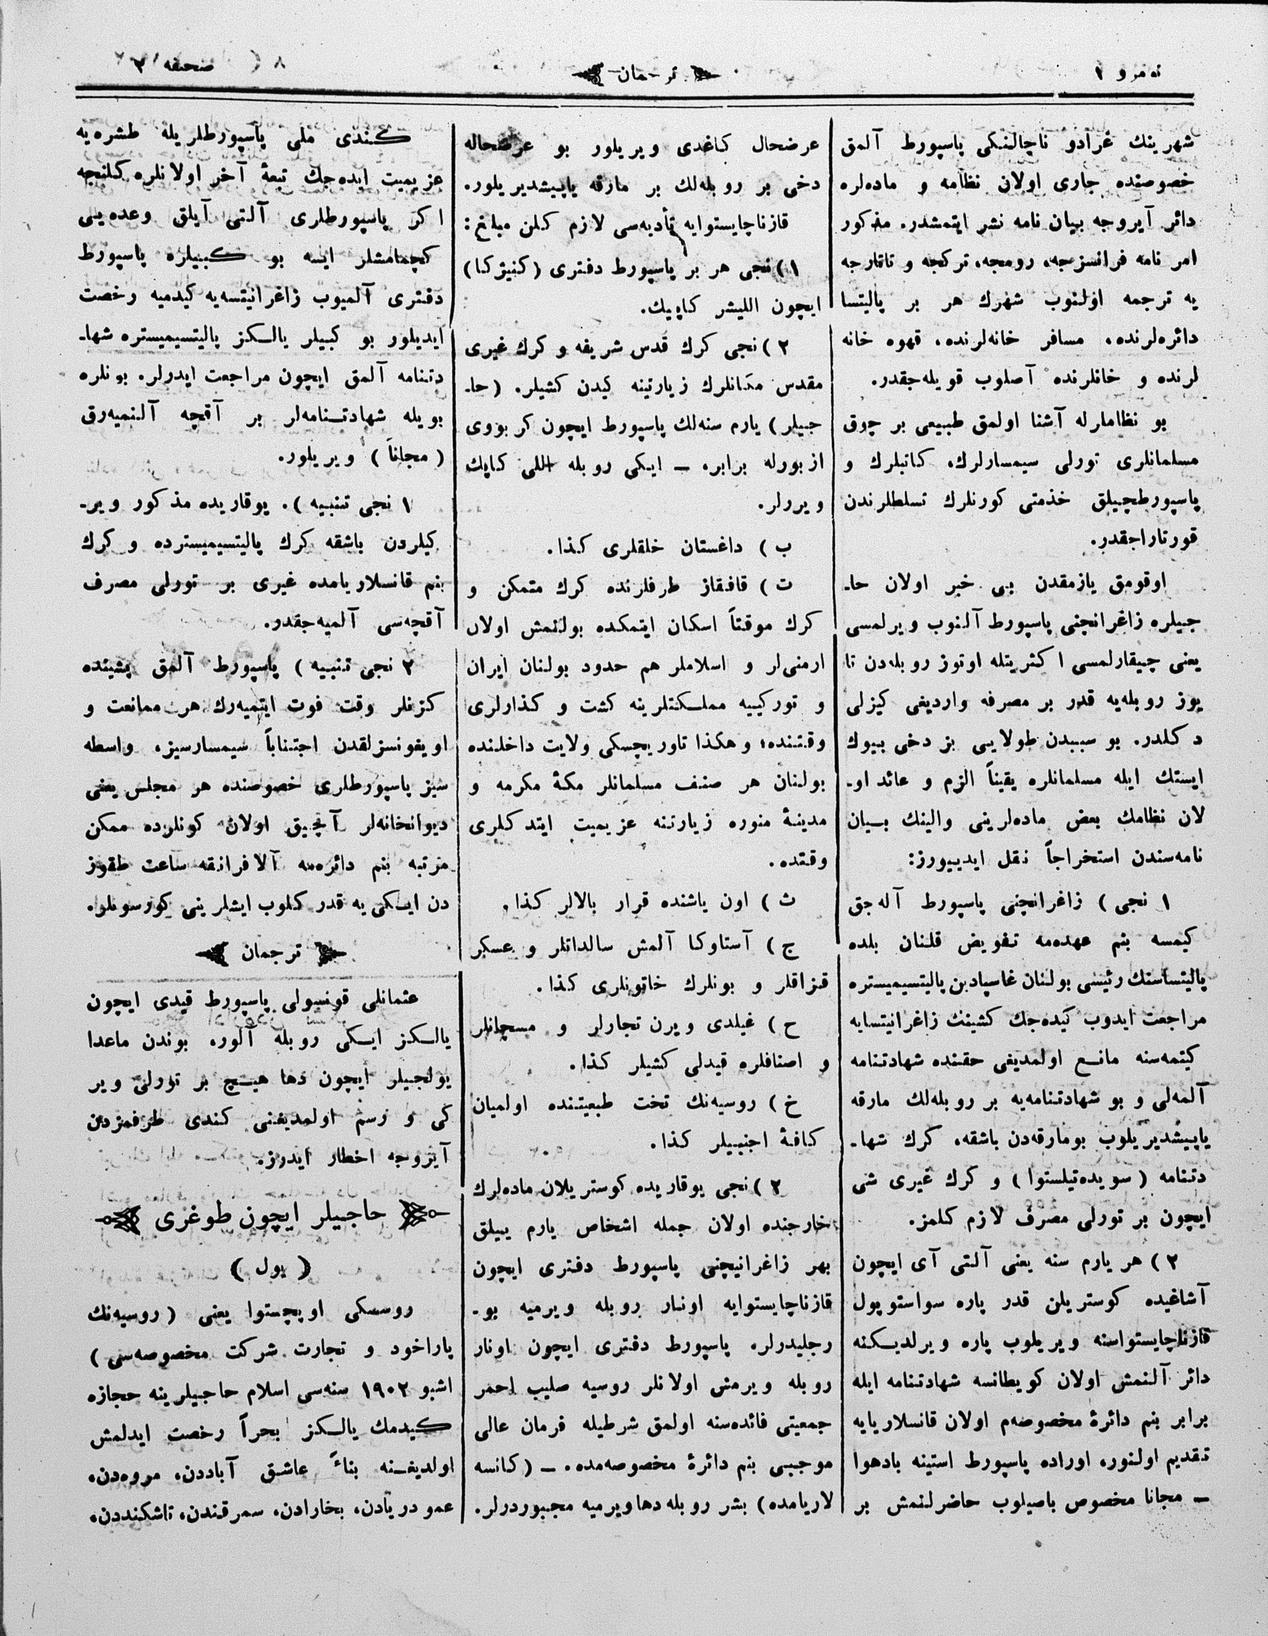 نومرو ١
ترجمان
صحيفه ٢
شهرينك غرادو ناچالنكى پاسپورط آلمق
خصوصنده جارى اولان نظامه و ماده‌لره
دائر آيروجه بيان نامه نشر ايتمشدر. مذكور
امر نامه فرانسزجه، رومجه، تركجه و تاتارجه
يه ترجمه اولنوب شهرك هر بر پاليتسا
دائره‌لرنده، مسافر خانه‌لرنده، قهوه خانه
لرنده و خانلرنده آصلوب قويله‌جقدر.
بو نظاملرله آشنا اولمق طبيعى بر چوق
مسلمانلرى تورلى سيمسارلرك، كاتبلرك و
پاسپورطچيلق خذمتى كورنلرك تسلطلرندن
قورتاراجقدر.
اوقومق يازمقدن بى خبر اولان حا۔
جيلره زاغرانچنى پاسپورط آلنوب ويرلمسى
يعنى چيقارلمسى اكثريتله اوتوز روبله‌دن تا
يوز روبله‌يه قدر بر مصرفه وارديغى كيزلى
دكلدر. بو سببدن طولايى بز دخى بيوك
ايستك ايله مسلمانلره يقيناً الزم و عائد او۔
لان نظامك بعض ماده‌لرينى والينك بيان
نامه‌سندن استخراجاً نقل ايدييورز:
١ نجى ) زاغرانچنى پاسپورط آله‌جق
كيمسه بنم عهده‌مه تفويض قلنان بلده
پاليتساسنك رئيسى بولنان غاسپادين پاليتسيميستره
مراجعت ايدوب كيده‌جك كشينك زاغرانيتسايه
كيتمه‌سنه مانع اولمديغى حقنده شهادتنامه
آلمه‌لى و بو شهادتنامه‌يه بر روبله‌لك مارقه
ياپيشديريلوب بومارقه‌دن باشقه، كرك شها۔
دتنامه ( سويده‌تيلستوا ) و كرك غيرى شى
ايچون بر تورلى مصرف لازم كلمز.
٢ ) هر يارم سنه يعنى آلتى آى ايچون
آشاغيده كوستريلن قدر پاره سواستوپول
قازناچايستواسنه ويريلوب پاره ويرلديكنه
دائر آلنمش اولان كويطانسه شهادتنامه ايله
برابر بنم دائرۀ مخصوصه‌م اولان قانسلاريايه
تقديم اولنور، اوراده پاسپورط استينه بادهوا
ـ مجانا مخصوص باصيلوب حاضرلنمش بر
عرضحال كاغدى ويريلور بو عرضحاله
دخى بر روبله‌لك بر مارقه ياپيشديريلور.
قازناچايستوايه تأديه‌سى لازم كلن مبلغ:
١ ) نجى هر بر پاسپورط دفترى (كنيژكا)
ايچون الليشر كاپيك.
٢ ) نجى كرك قدس شريفه و كرك غيرى
مقدس مكانلرك زيارتينه كيدن كشيلر. (حا۔
جيلر) يارم سنه‌لك پاسپورط ايچون كربووى
ازبورله برابر. ـ ايكى روبله اللى كاپك
ويررلر.
ب ) داغستان خلقلرى كذا.
ت ) قافقاز طرفلرنده كرك متمكن و
كرك موقتاً اسكان ايتمكده بولنمش اولان
ارمنى‌لر و اسلاملر هم حدود بولنان ايران
و توركييه مملكتلرينه كشت و كذارلرى
وقتنده؛ وهكذا تاوريچسكى ولايت داخلنده
بولنان هر صنف مسلمانلر مكۀ مكرمه و
مدينۀ منوره زيارتنه عزيميت ايتدكلرى
وقتده.
ث ) اون ياشنده قرار بالالر كذا.
ج ) آستاوكا آلمش سالداتلر و عسكر
قزاقلر و بونلرك خاتونلرى كذا.
ح ) غيلدى ويرن تجارلر و مسچانلر
و اصنافلره قيدلى كشيلر كذا.
خ ) روسيه‌نك تحت طبعيتنده اولميان
كافۀ اجنبيلر كذا.
٢ ) نجى يوقاريده كوستريلان ماده‌لرك
خارجنده اولان جمله اشخاص يارم ييللق
بهر زاغرانيچنى پاسپورط دفترى ايچون
قازناچايستوايه اونار روبله ويرميه بو۔
رجليدرلر. پاسپورط دفترى ايچون اونار
روبله ويرمش اولانلر روسيه صليب احمر
جمعيتى فائده‌سنه اولمق شرطيله فرمان عالى
موجبى بنم دائرۀ مخصوصه‌مده. ـ (كانسه
لاريامده) بشر روبله دهاويرميه مجبوردرلر.
كندى ملى پاسپورطلريله طشره‌يه
عزيميت ايده‌جك تبعۀ آخر اولانلره كلنجه
اكر پاسپورطلرى آلتى آيلق وعده‌يى
كچمامشلر ايسه بو كبيلره پاسپورط
دفترى آلميوب زاغرانيتسه‌يه كيدميه رخصت
ايديلور بو كبيلر يالكز پاليتسيميستره شها۔
دتنامه آلمق ايچون مراجعت ايدرلر. بونلره
بويله شهادتنامه‌لر بر آقچه آلنميه‌رق
( مجاناً ) ويريلور.
١ نجى تنبيه ). يوقاريده مذكور وير۔
كيلردن باشقه كرك پاليتسيميسترده و كرك
بنم قانسلاريامده غيرى بر تورلى مصرف
آقچه‌سى آلميه‌جقدر.
٢ نجى تنبيه ) پاسپورط آلمق پشينده
كزنلر وقت فوت ايتميه‌رك هر ممانعت و
اويغونسزلقدن اجتناباً سيمسارسيز، واسطه
سيز پاسپورطلرى خصوصنده هر مجلس يعنى
ديوانخانه‌لر آچيق اولان كونلرده ممكن
مرتبه بنم دائره‌مه آلافرانقه ساعت طقوز
دن ايكى‌يه قدر كلوب ايشلرينى كورسونلر.
ترجمان
عثمانلى قونسولى پاسپورط قيدى ايچون
يالكز ايكى روبله آلور. بوندن ماعدا
يولجيلر ايچون دها هيچ بر تورلى وير
كى و رسم اولمديغنى كندى طرفمزدن
آيروجه اخطار ايدرز.
حاجيلر ايچون طوغرى
( يول )
روسسكى اوبچستوا يعنى ( روسيه‌نك
پاراخود و تجارت شركت مخصوصه‌سى )
اشبو ١٩٠٢ سنه‌سى اسلام حاجيلرينه حجازه
كيدمك يالكز بحراً رخصت ايدلمش
اولديغنه بناءً عاشق آباددن، مروه‌دن،
عمو دريادن، بخارادن، سمرقندن، تاشكنددن،